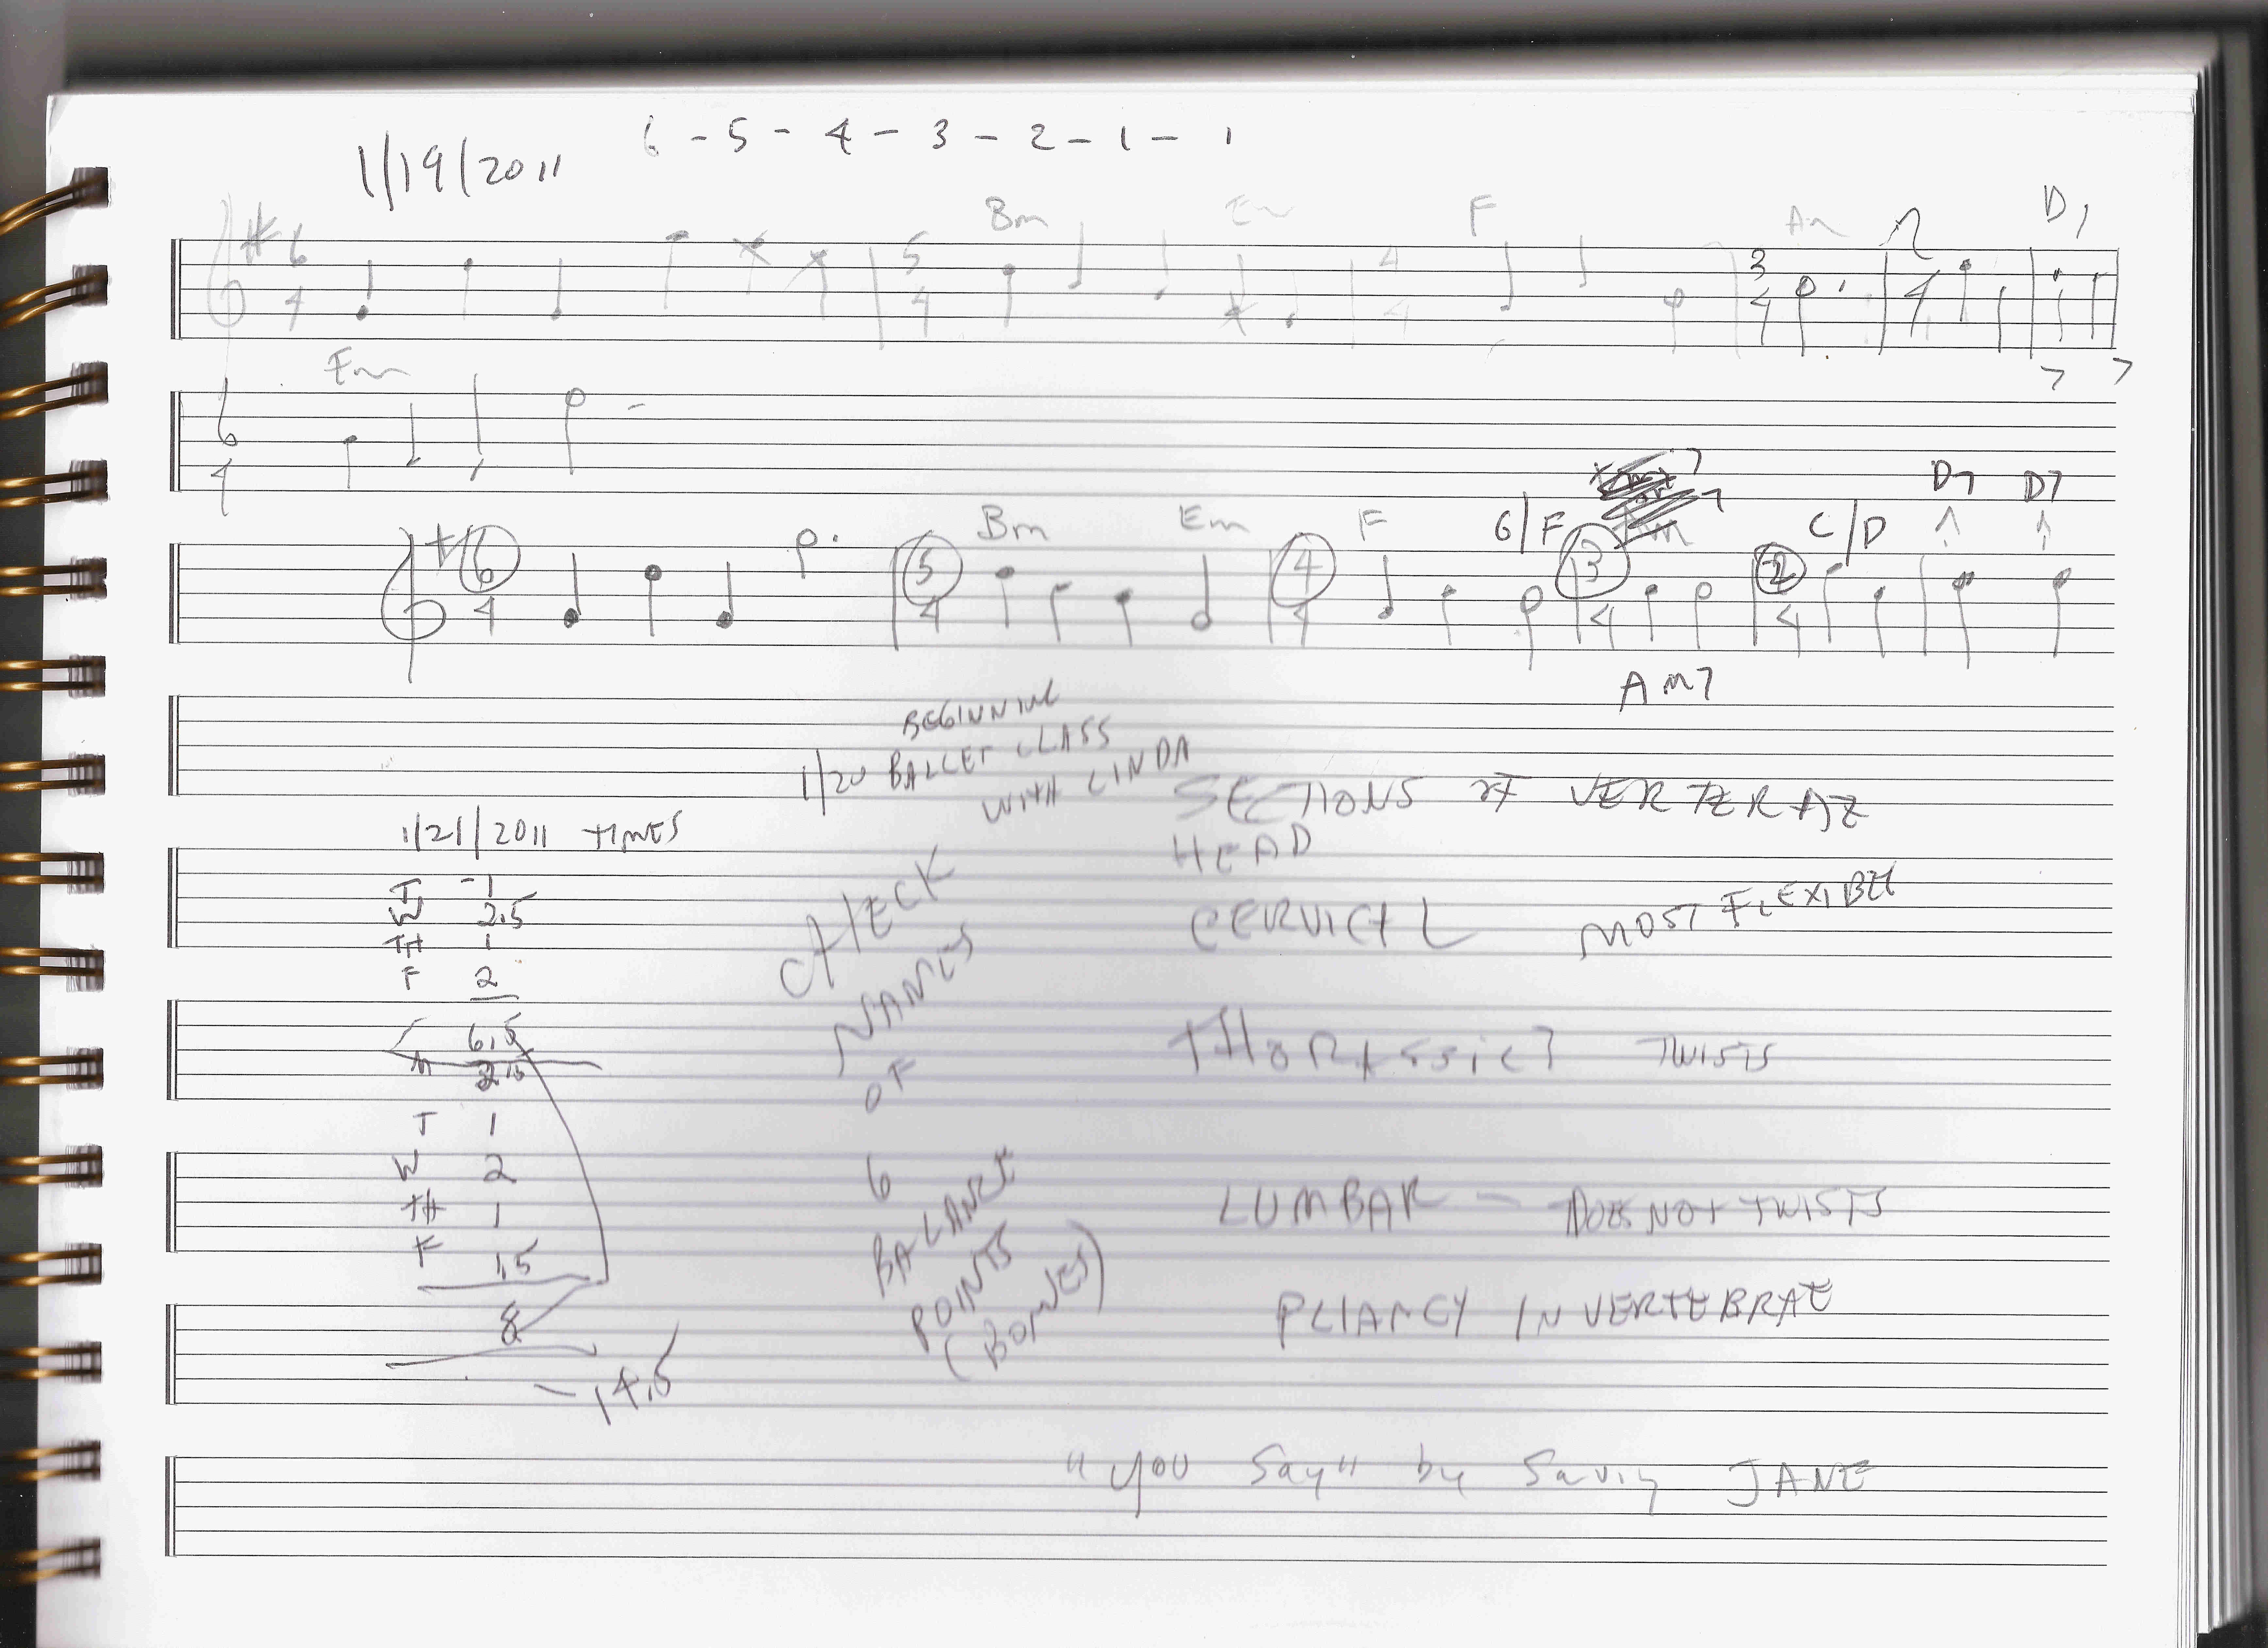 6 - 5 - 4 - 3 - 2 - 1 - 1
1/19/2011
Bm Em F Am D7
# 6 4 5 4 4 4 3 4 2 4
> >
Em
6 4
D7 D7
Bm Em F G/F C/D ^ ^
# 6 4 5 4 4 4 3 4 2 4
Am7
BEGINNING
1/20 BALLET CLASS
WITH LINDA
SECTIONS OF
HEAD
CERVICAL MOST
THORASSIC? TWISTS
LUMBAR - DOES NOT TWISTS
PLIANCY IN VERTEBRAE
1/21/2011 TIMES
T -1
W 2.5
TH 1
F 2
6.5
M 2.5
T 1
W 2
TH 1
F 1.5
8
- 14.5
CHECK
NAMES
OF
6
BALANCE
POINTS
(BONES)
"You Say" by Saving JANE